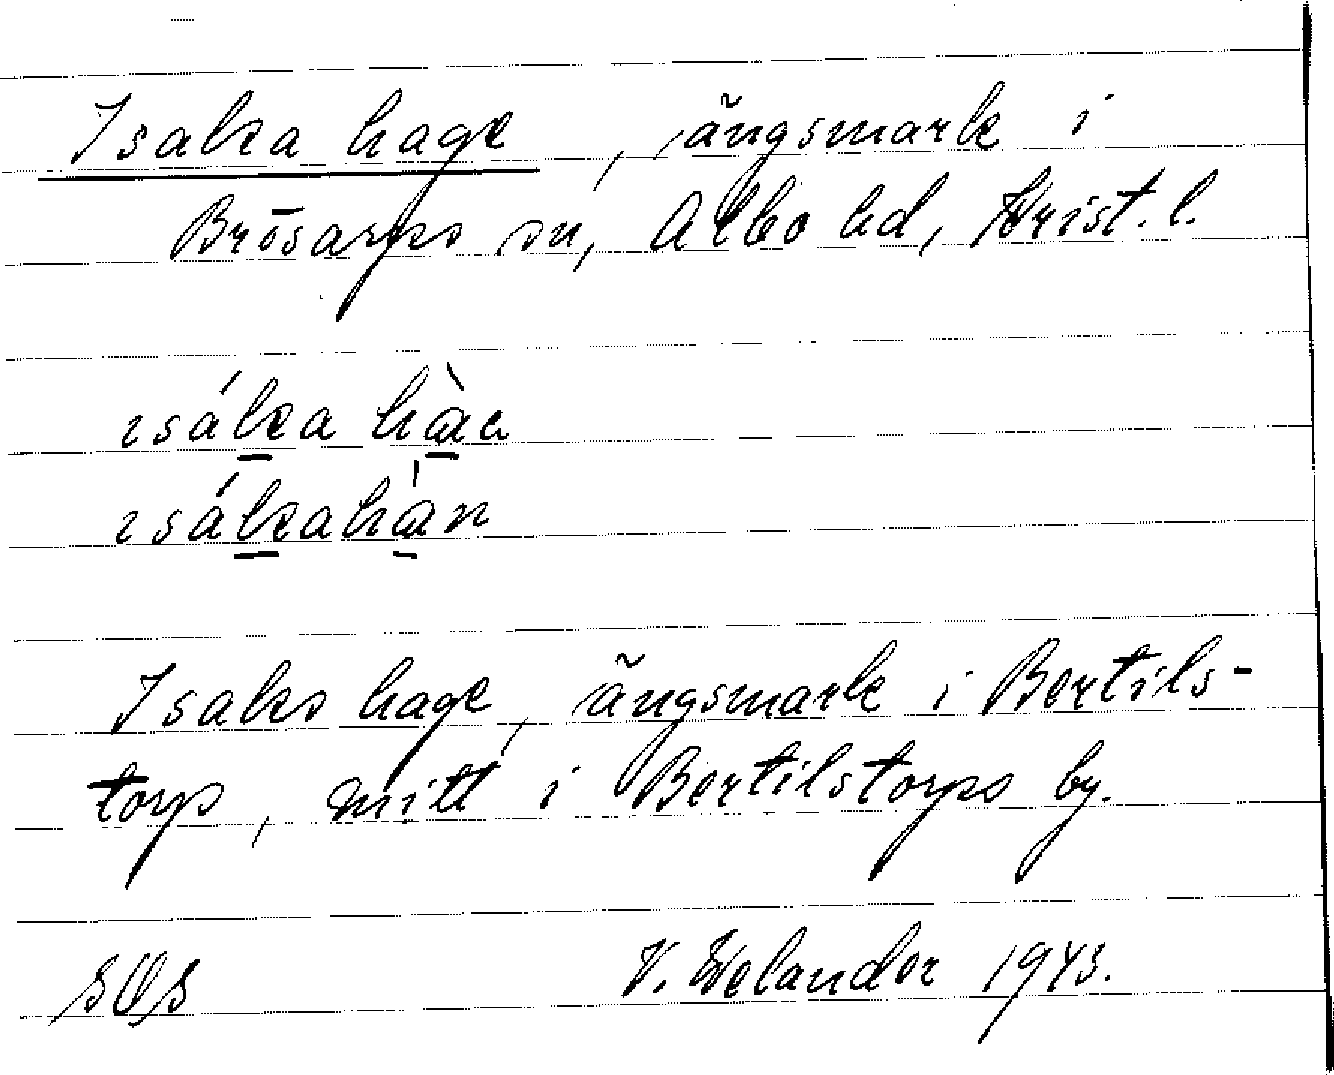 Isaka hage, ängsmark i
Brösarps sn, Albo hd, Krist. l.
ısáka hàa
ısákahàn
Isaks hage, ängsmark i Bertils-
torp, mitt i Bertilstorps by.
SOS V. Welander 1943.